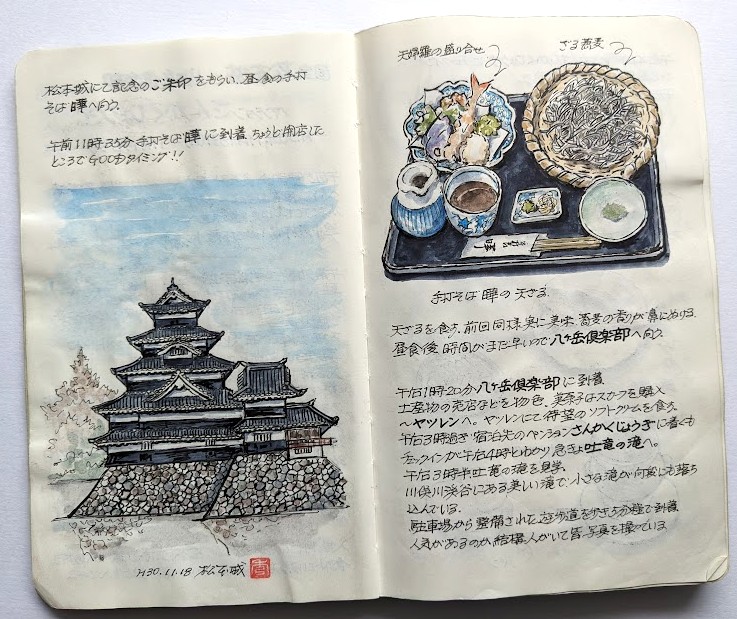 松本城にて記念のご朱印をもらい、昼食の手打
そば 曄へ向う.
午前11時35分 手打そば 曄 に到着 ちょうど開店した
ところでGOODタイミング!!
H30.11.18 松本城
天婦羅の盛り合せ
ざる蕎麦
手打そば 曄の 天ざる.
天ざるを食す. 前回同様 実に美味. 蕎麦の香りが鼻にぬける.
昼食後 時間がまだ早いので 八ヶ岳倶楽部へ向う.
午后1時20分 八ヶ岳倶楽部 に到着
土産物の売店などを物色. はスカーフを購入
〜ヤツレンへ。ヤツレンにて待望のソフトクリームを食す.
午后3時過ぎ 宿泊先のペンション さんかくじょうぎに着くも
チェックインが午后4時とわかり 急きょ 吐竜の滝へ.
午后3時半 吐竜の滝を見学.
川俣川渓谷にある美しい滝で 小さな滝が何段にも落ち
込んでいる.
駐車場から 整備された 遊歩道を歩き5分程で到着
人気があるのか 結構 人がいて皆 写真を撮っている